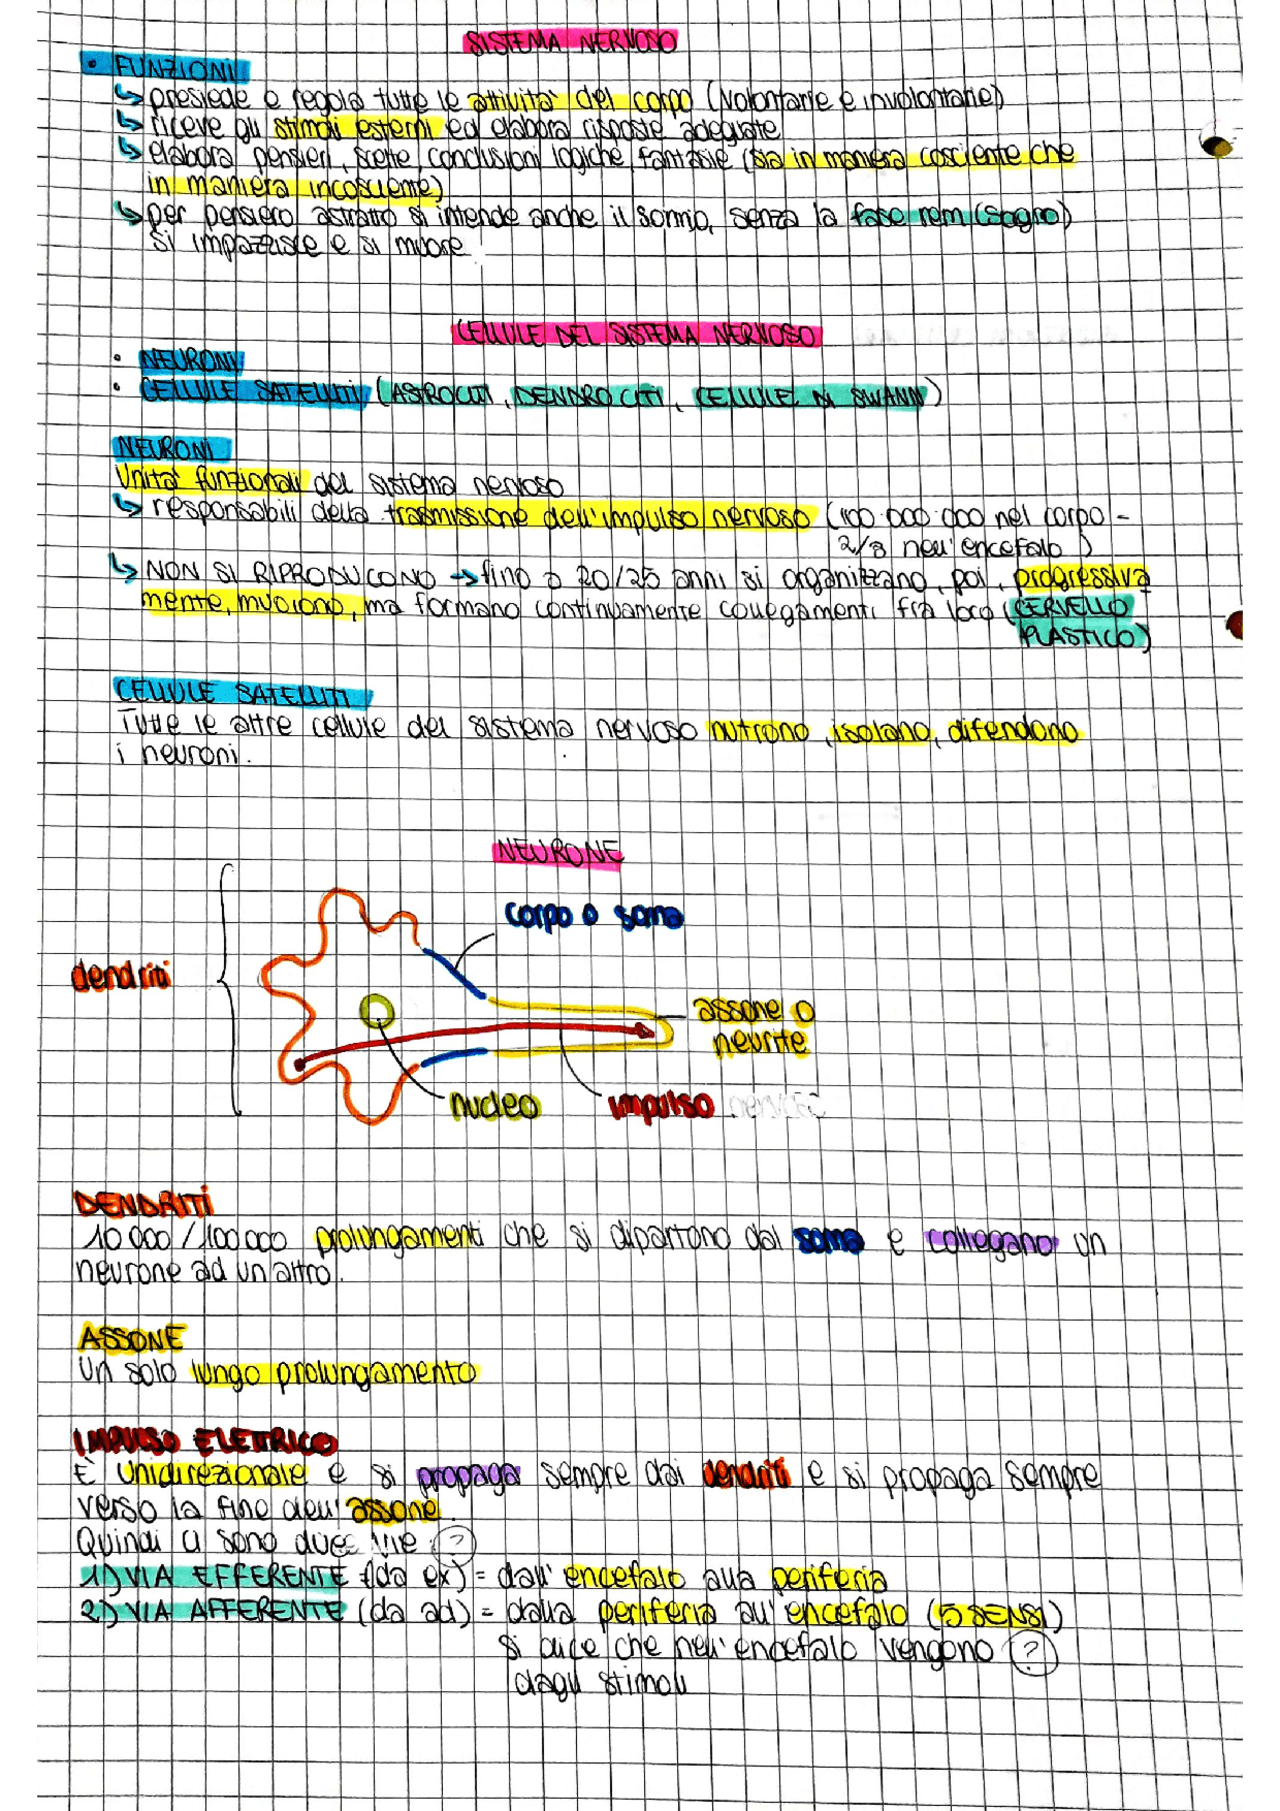 SISTEMA NERVOSO
• FUNZIONI
↳ presiede e regola tutte le attività del corpo (volontarie e involontarie)
↳ riceve gli stimoli esterni ed elabora risposte adeguate
↳ elabora pensieri, scelte, conclusioni logiche, fantasie (sia in maniera cosciente che
in maniera incosciente)
↳ per pensiero astratto si intende anche il sonno, senza la fase rem (sogno)
si impazzisce e si muore
CELLULE DEL SISTEMA NERVOSO
• NEURONI
• CELLULE SATELLITI (ASTROCITI, DENDROCITI, CELLULE DI SWANN)
NEURONI
Unità funzionali del sistema nervoso
↳ responsabili della trasmissione dell'impulso nervoso (100 000 000 nel corpo -
2/3 nell'encefalo)
↳ NON SI RIPRODUCONO → fino a 20/25 anni si organizzano, poi, progressiva
mente, muoiono, ma formano continuamente collegamenti fra loro (CERVELLO
PLASTICO)
CELLULE SATELLITI
Tutte le altre cellule del sistema nervoso nutrono, isolano, difendono
i neuroni.
NEURONE
corpo o soma
dendriti
assone o
neurite
nucleo
impulso nervoso
DENDRITI
10 000 / 100 000 prolungamenti che si dipartono dal soma e collegano un
neurone ad un altro.
ASSONE
Un solo lungo prolungamento
IMPULSO ELETTRICO
È unidirezionale e si propaga sempre dai dendriti e si propaga sempre
verso la fine dell'assone.
Quindi ci sono due vie (?)
1) VIA EFFERENTE (da ex) = dall'encefalo alla periferia
2) VIA AFFERENTE (da ad) = dalla periferia all'encefalo (5 SENSI)
si dice che nell'encefalo vengono (?)
dagli stimoli